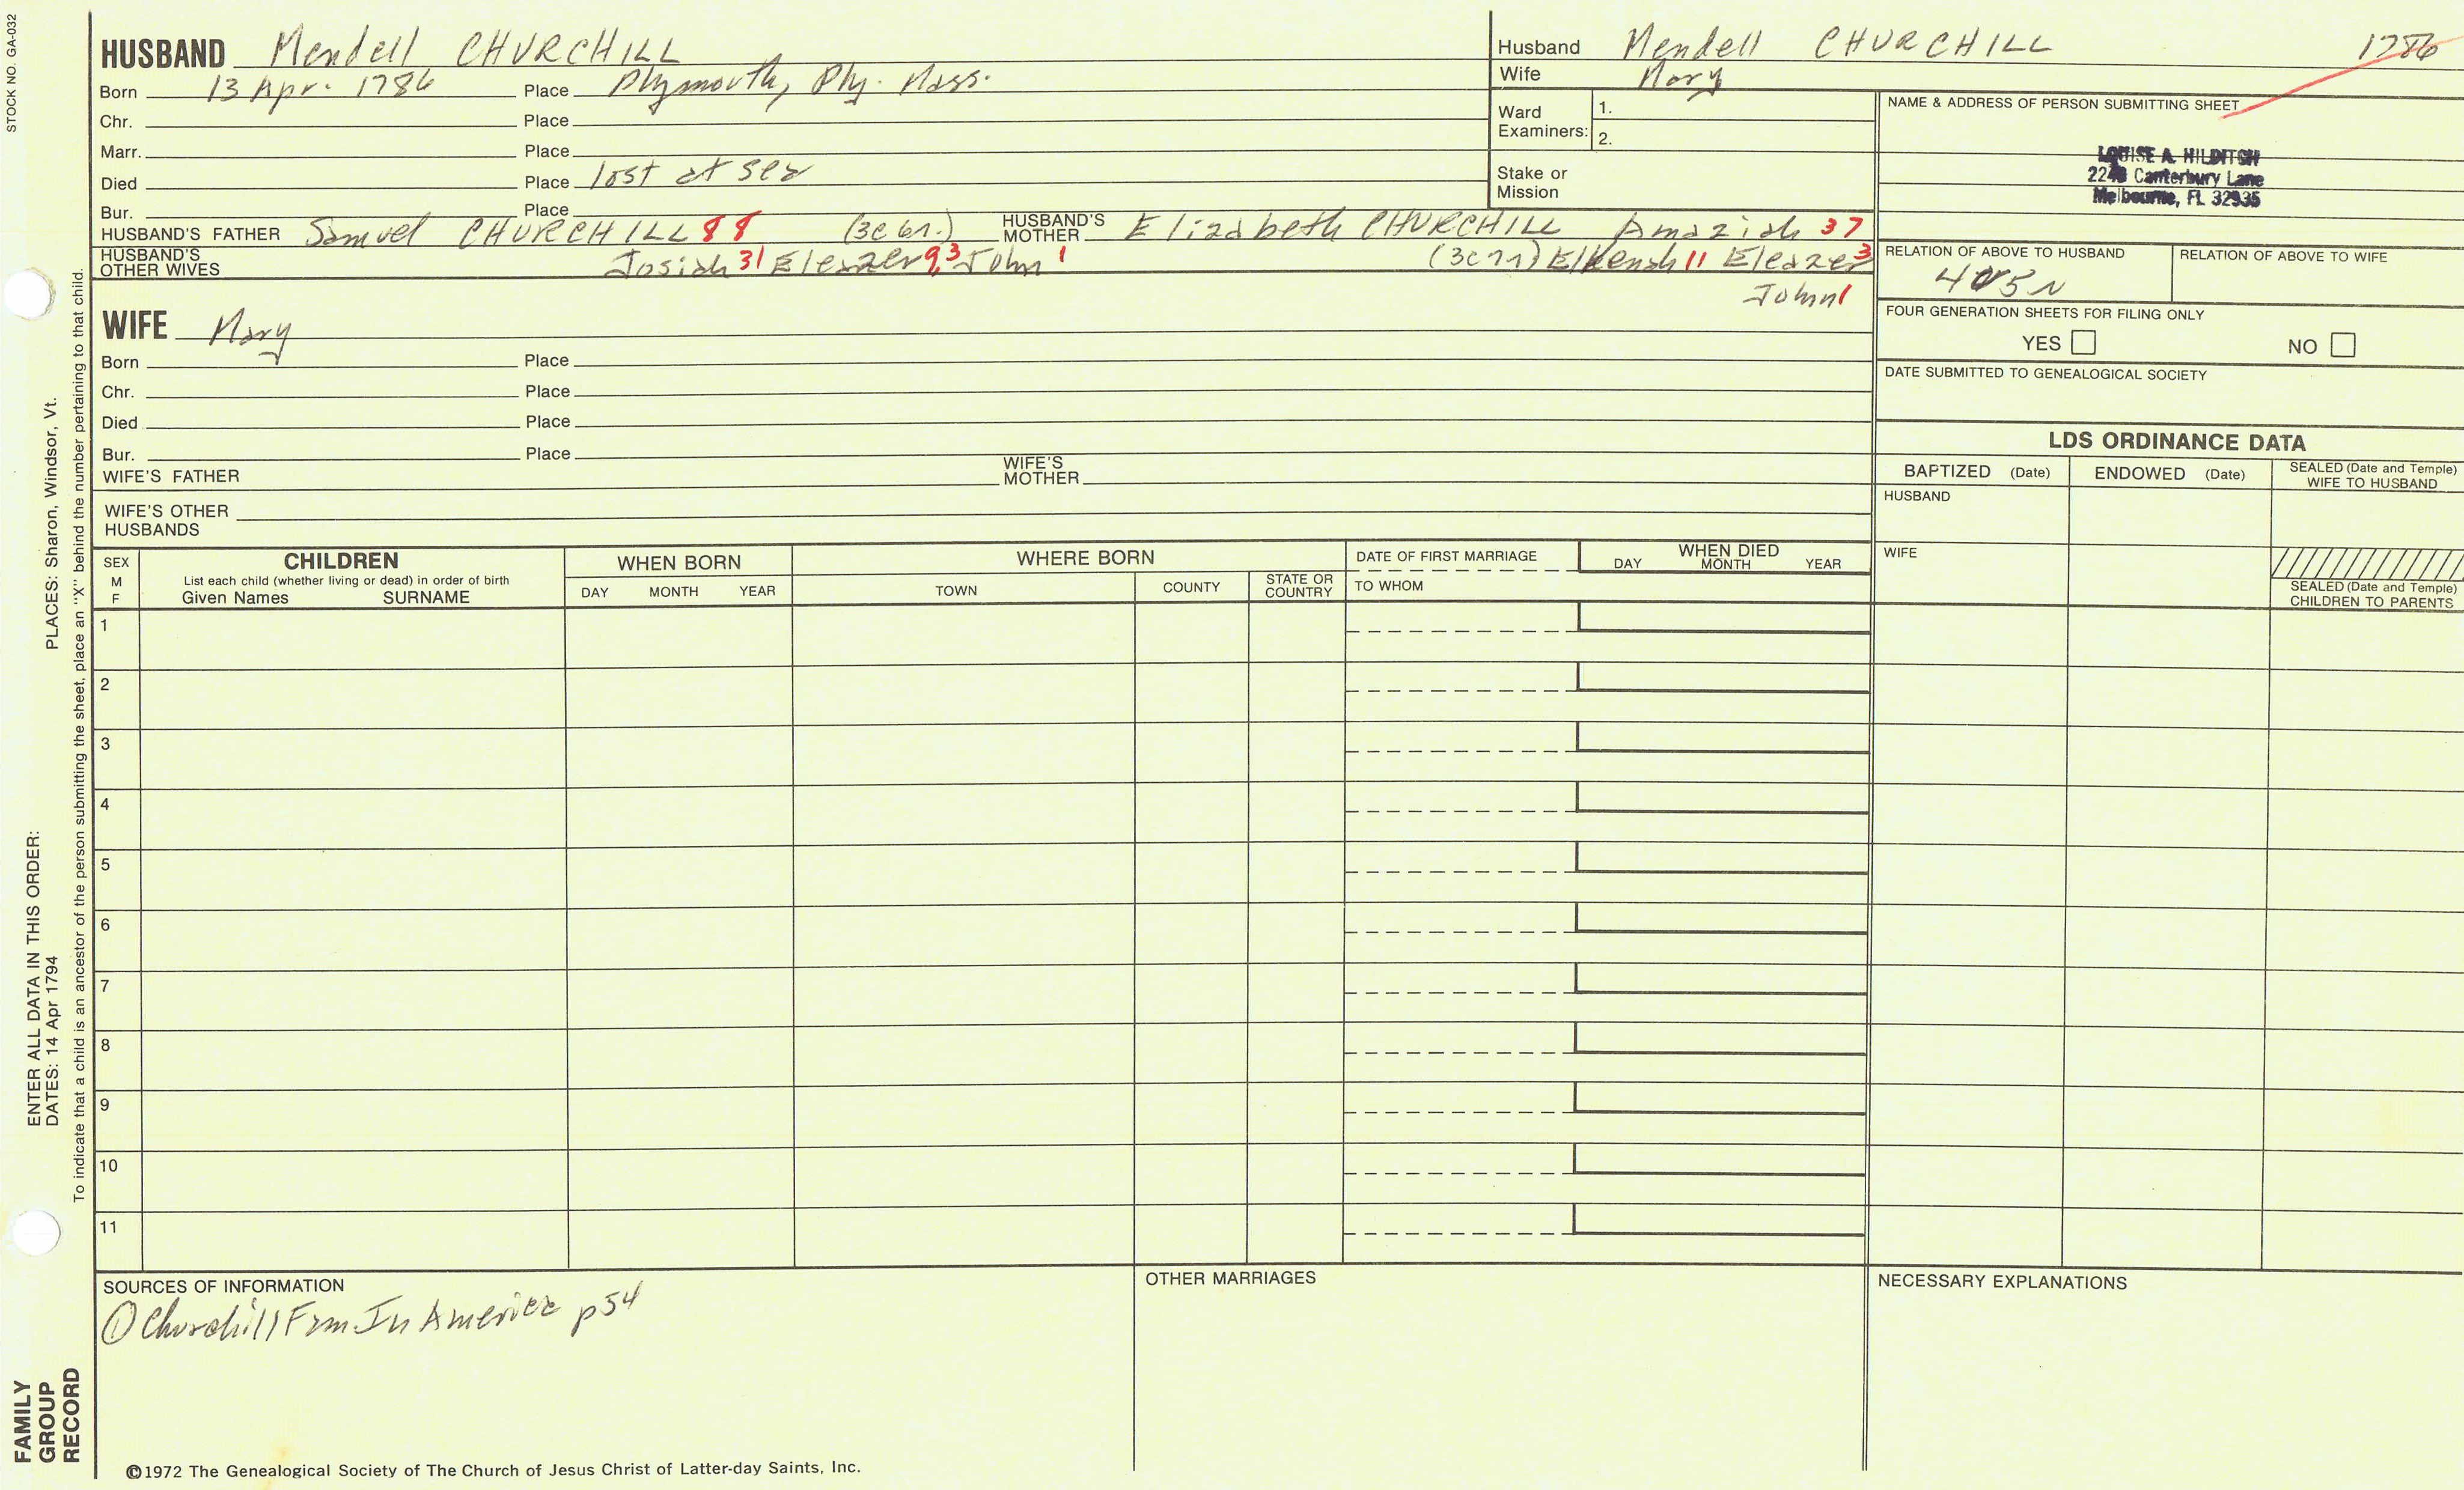 STOCK NO. GA-032
HUSBAND Mendell CHURCHILL
Born 13 Apr. 1786 Place Plymouth, Ply. Mass.
Chr. Place
Marr. Place
Died Place lost at sea
Bur. Place
HUSBAND'S FATHER Samuel CHURCHILL 88 (3c6r.) HUSBAND'S MOTHER Elizabeth CHURCHILL Amaziah 37
HUSBAND'S OTHER WIVES Josiah 31 Eleazer 9,3 John 1 Elkenah 11 Eleazer 3
John 1
Husband Mendell CHURCHILL 1786
Wife Mary
Ward Examiners: 1.
2.
Stake or Mission
NAME & ADDRESS OF PERSON SUBMITTING SHEET
LOUISE A. HILDITCH
Canterbury Lane
Melbourne, FL 32935
RELATION OF ABOVE TO HUSBAND
RELATION OF ABOVE TO WIFE
FOUR GENERATION SHEETS FOR FILING ONLY
YES NO
DATE SUBMITTED TO GENEALOGICAL SOCIETY
WIFE Mary
Born Place
Chr. Place
Died Place
Bur. Place
WIFE'S FATHER WIFE'S MOTHER
WIFE'S OTHER HUSBANDS
LDS ORDINANCE DATA
BAPTIZED (Date) ENDOWED (Date) SEALED (Date and Temple) WIFE TO HUSBAND
HUSBAND
WIFE
SEALED (Date and Temple) CHILDREN TO PARENTS
SEX M F
CHILDREN
List each child (whether living or dead) in order of birth
Given Names SURNAME
WHEN BORN
DAY MONTH YEAR
WHERE BORN
TOWN COUNTY STATE OR COUNTRY
DATE OF FIRST MARRIAGE
TO WHOM
WHEN DIED
DAY MONTH YEAR
1
2
3
4
5
6
7
8
9
10
11
SOURCES OF INFORMATION
① Churchill Fam In America p54
OTHER MARRIAGES
NECESSARY EXPLANATIONS
©1972 The Genealogical Society of The Church of Jesus Christ of Latter-day Saints, Inc.
FAMILY
GROUP
RECORD
ENTER ALL DATA IN THIS ORDER:
DATES: 14 Apr 1794 PLACES: Sharon, Windsor, Vt.
To indicate that a child is an ancestor of the person submitting the sheet, place an "X" behind the number pertaining to that child.